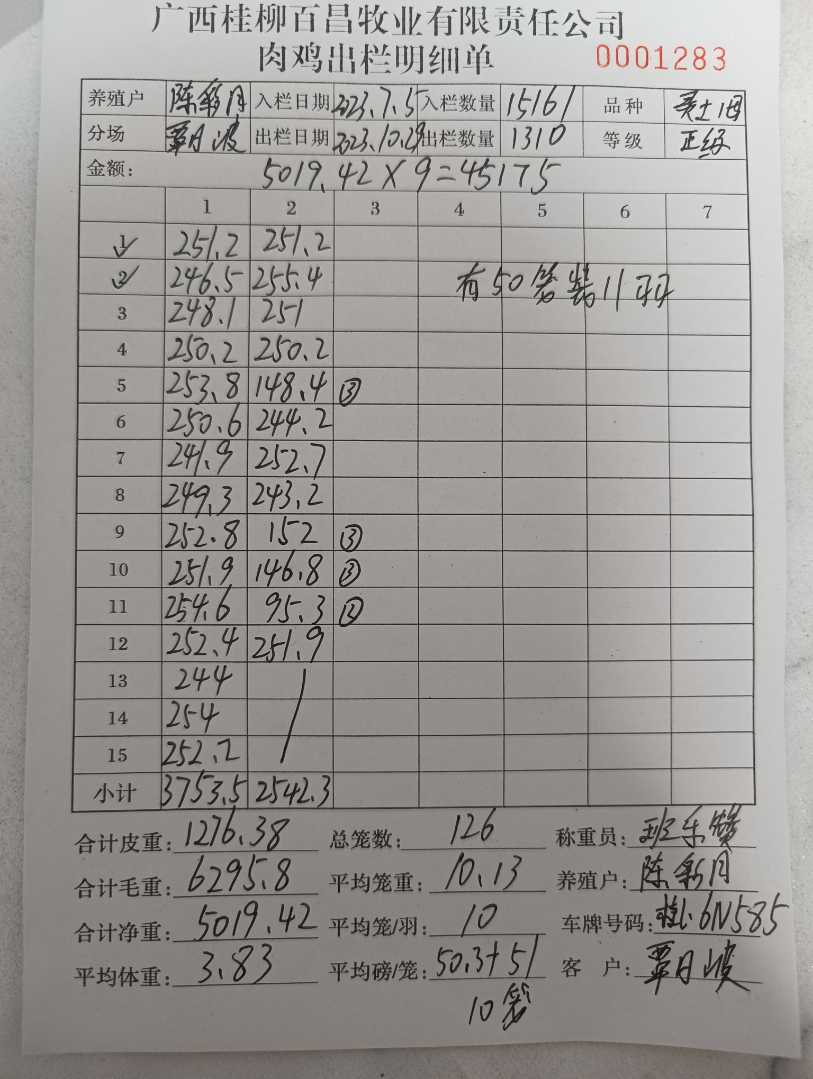 广西桂柳百昌牧业有限责任公司
肉鸡出栏明细单 0001283
养殖户 陈彩月 入栏日期 2023.7.5 入栏数量 15161 品种
分场 覃月波 出栏日期 2023.10.29 出栏数量 1310 等级 正级
金额: 5019.42×9=45175
1 2 3 4 5 6 7
1 251.2 251.2
2 246.5 255.4 有50笼装11羽
3 248.1 251
4 250.2 250.2
5 253.8 148.4 ③
6 250.6 244.2
7 241.9 252.7
8 249.3 243.2
9 252.8 152 ③
10 251.9 146.8 ③
11 254.6 95.3 ②
12 252.4 251.9
13 244
14 254
15 252.2
小计 3753.5 2542.3
合计皮重: 1276.38 总笼数: 126 称重员: 班乐赞
合计毛重: 6295.8 平均笼重: 10.13 养殖户: 陈彩月
合计净重: 5019.42 平均笼/羽: 10 车牌号码: 6N585
平均体重: 3.83 平均磅/笼: 50.3+51 客 户: 覃月波
10笼